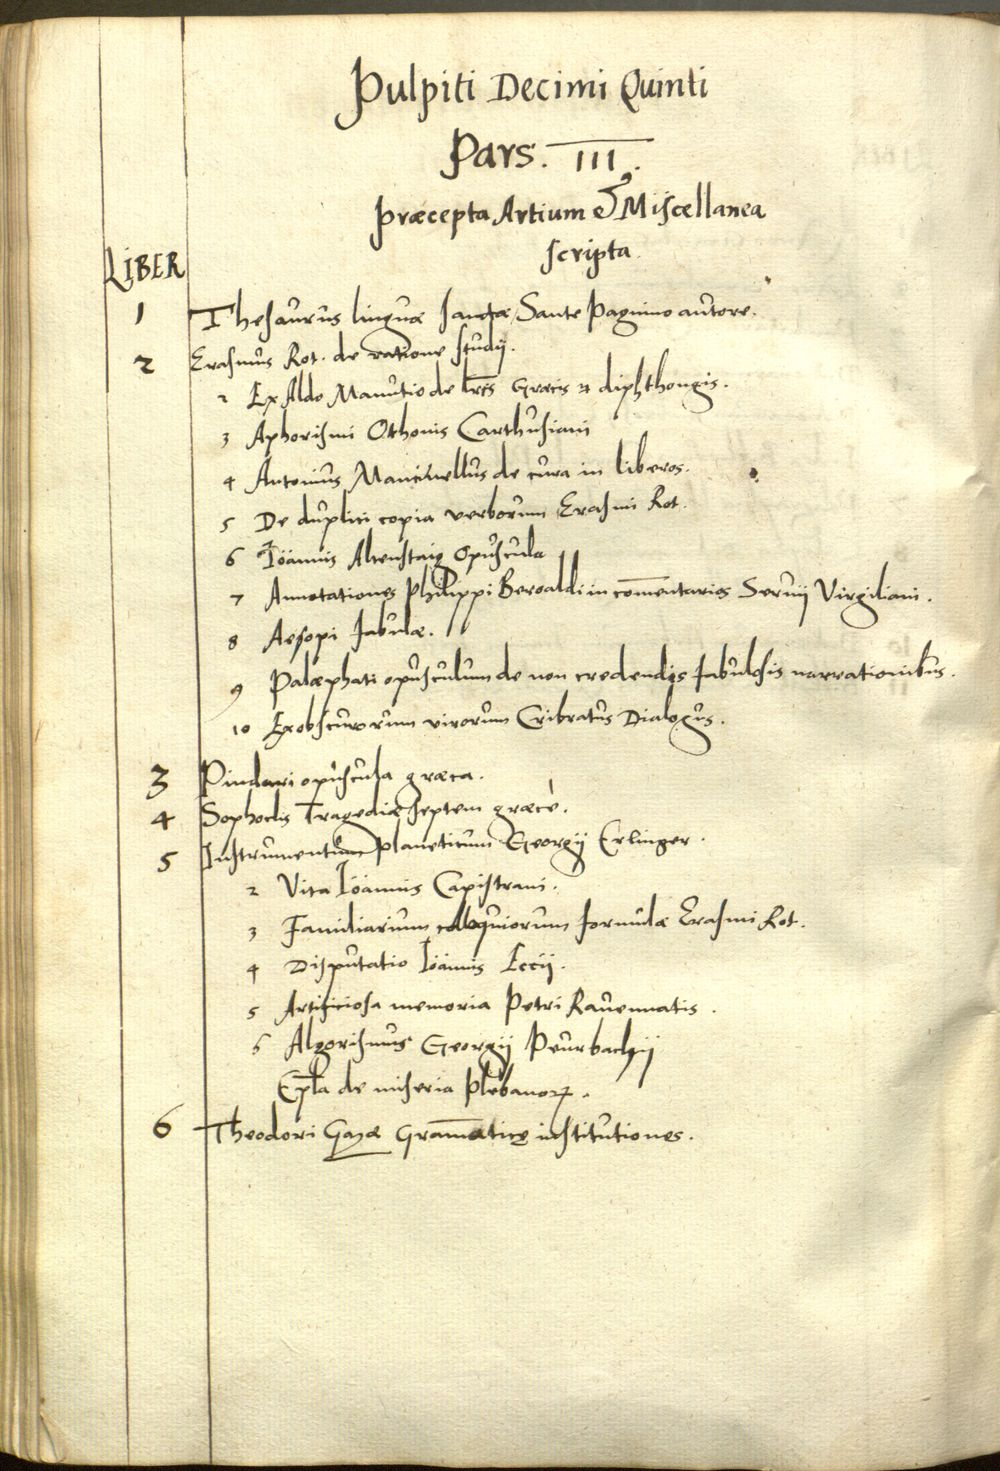 Pulpiti Decimi Quinti
Pars. III.
Præcepta Artium & Miscellanea
scripta.
LIBER
1 Thesaurus linguæ sanctæ, Sante Pagnino autore.
2 Erasmus Rot. de ratione studij.
2 Ex Aldo Manutio de lr̄is Græcis & diphthongis.
3 Aphorismi Othonis Carthusiani
4 Antonius Mancinellus de cura in liberos.
5 De duplici copia verborum Erasmi Rot.
6 Ioannis Altenstaig Opuscula
7 Annotationes Philippi Beroaldi in com̄entarios Seruij Virgiliani.
8 Aesopi fabulæ.
9 Palæphati opusculum de non credendis fabulosis narrationibus.
10 Ex obscurorum virorum Cribratus Dialogus.
3 Pindari opùscula græca.
4 Sophoclis Tragediæ septem græcè.
5 Instrumentum planeticum Georgij Erlinger.
2 Vita Ioannis Capistrani.
3 Familiarium colloquiorum formulæ Erasmi Rot.
4 Disputatio Ioannis Eccij.
5 Artificiosa memoria Petri Rauennatis.
6 Algorismus Georgij Peurbachij
Ep̄la de miseria Plebanoꝝ.
6 Theodori Gazæ Gram̄aticę institutiones.